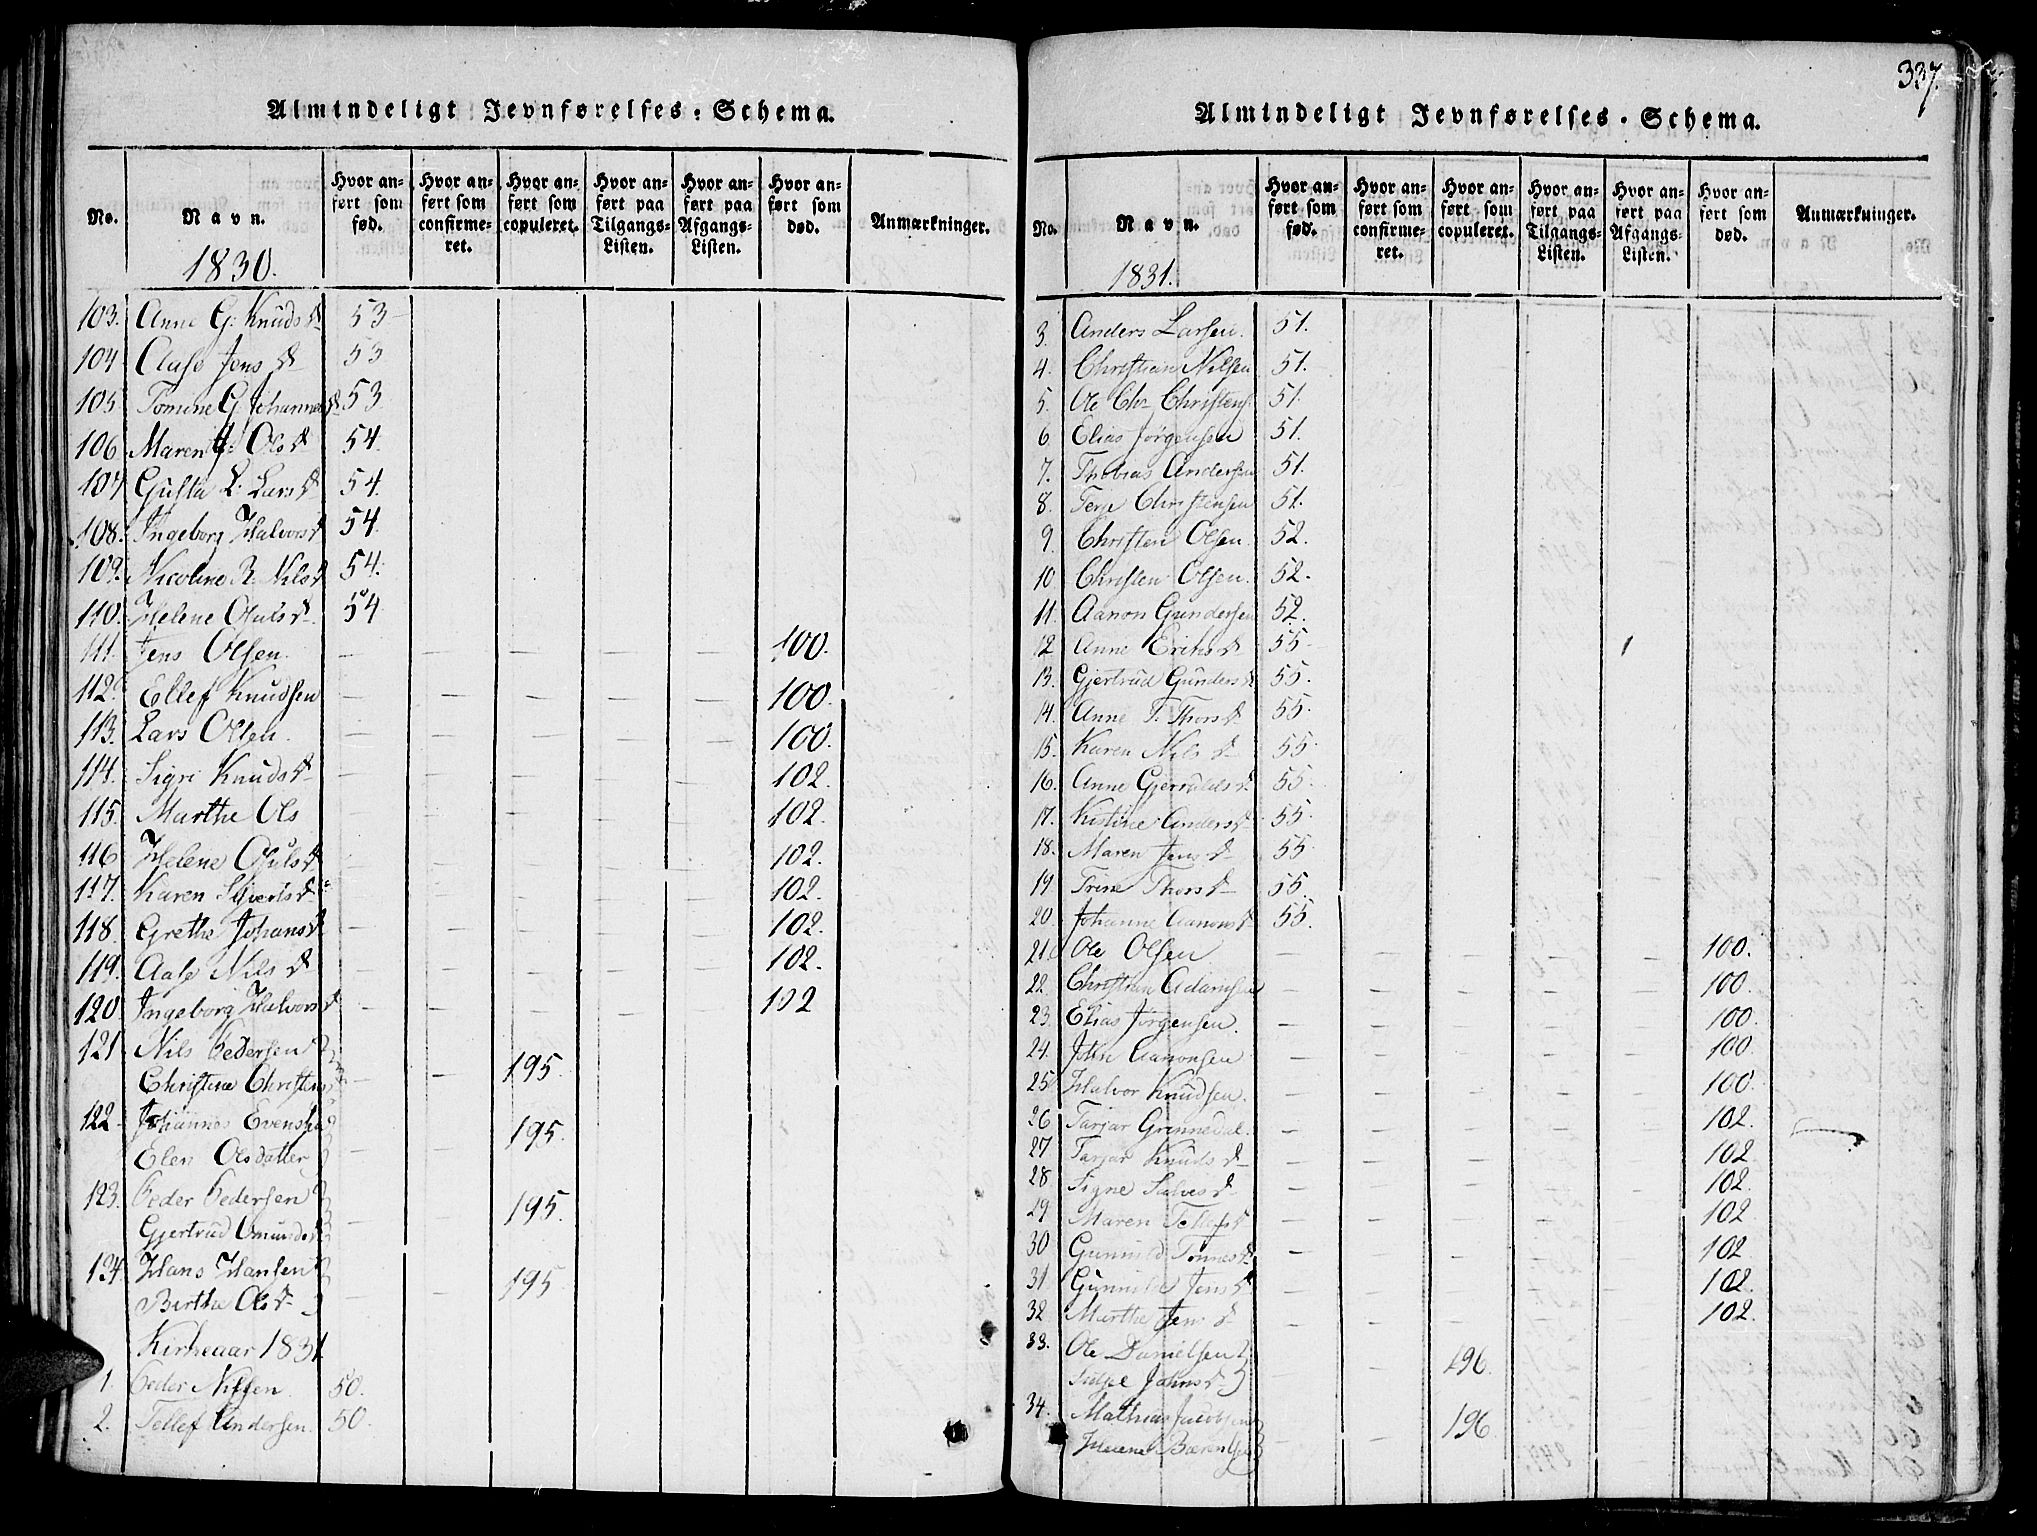 Almindeligt Jevnførelses-Schema.
No.
Navn.
Hvor anført som fød.
Hvor anført som confirmeret.
Hvor anført som copuleret.
Hvor anført paa Tilgangs-Listen.
Hvor anført paa Afgangs-Listen.
Hvor anført som død.
Anmærkninger.
1830.
103. Anne G: Knudsd 53
104 Aase Jensd 53
105 Tomine G. Johannesd 53
106 Maren Olsd 54.
107 Gusta L. Larsd 54.
108. Ingeborg Halvorsd 54.
109. Nicoline R. Nilsd 54.
110. Helene Ofulsd 54
111. Jens Olsen. 100.
112. Ellef Knudsen 100.
113. Lars Olsen. 100.
114. Sigri Knudsd 102.
115. Marthe Ols 102.
116 Helene Ofulsd 102.
117. Karen Sivertsd 102.
118. Grethe Johansd 102.
119. Aase Nilsd 102.
120 Ingeborg Halvorsd 102
121 Nils Pedersen
Christine Christens 195.
122 Johannes Evensen
Elen Olsdatter 195.
123. Peder Pedersen
Gjertrud Omundsd 195.
124. Hans Hansen
Birthe Olsd 195.
Kirkeaar 1831
1. Peder Nilsen. 50.
2. Tellef Andersen. 50.
337.
Almindeligt Jevnførelses-Schema.
No.
Navn.
Hvor anført som fød.
Hvor anført som confirmeret.
Hvor anført som copuleret.
Hvor anført paa Tilgangs-Listen.
Hvor anført paa Afgangs-Listen.
Hvor anført som død.
Anmærkninger.
1831.
3. Anders Larsen. 51.
4. Christian Nilsen 51.
5. Ole Chr. Christens. 51.
6 Elias Jørgensen 51.
7. Thobias Andersen 51.
8. Terje Christensen 51.
9. Christen Olsen. 52.
10 Christen Olsen. 52.
11. Aanon Gundersen 52.
12 Anne Eriksd 55
13. Gjertrud Gundersd 55.
14. Anne T. Thorsd 55.
15. Karen Nilsd 55
16. Anne Gjeruldsd 55.
17. Kistine Andersd 55.
18. Maren Jensd 55
19 Trine Thorsd 55.
20. Johanne Aanonsd 55.
21. Ole Olsen 100.
22. Christian Adamsen 100.
23. Elias Jørgensen. 100.
24. John Aanonsen 100.
25 Halvor Knudsen. 100.
26 Tarjar Grennedal. 102.
27 Tarjar Knudsd 102
28 Signe Salvesd 102.
29 Maren Tellefsd 102
30 Gunnild Tønnesd 102
31 Gunnild Jensd 102.
32. Marthe Jensd 102.
33. Ole Danielsen
Johnsd 196.
34. Mathias Jacobsen
Helene 196.